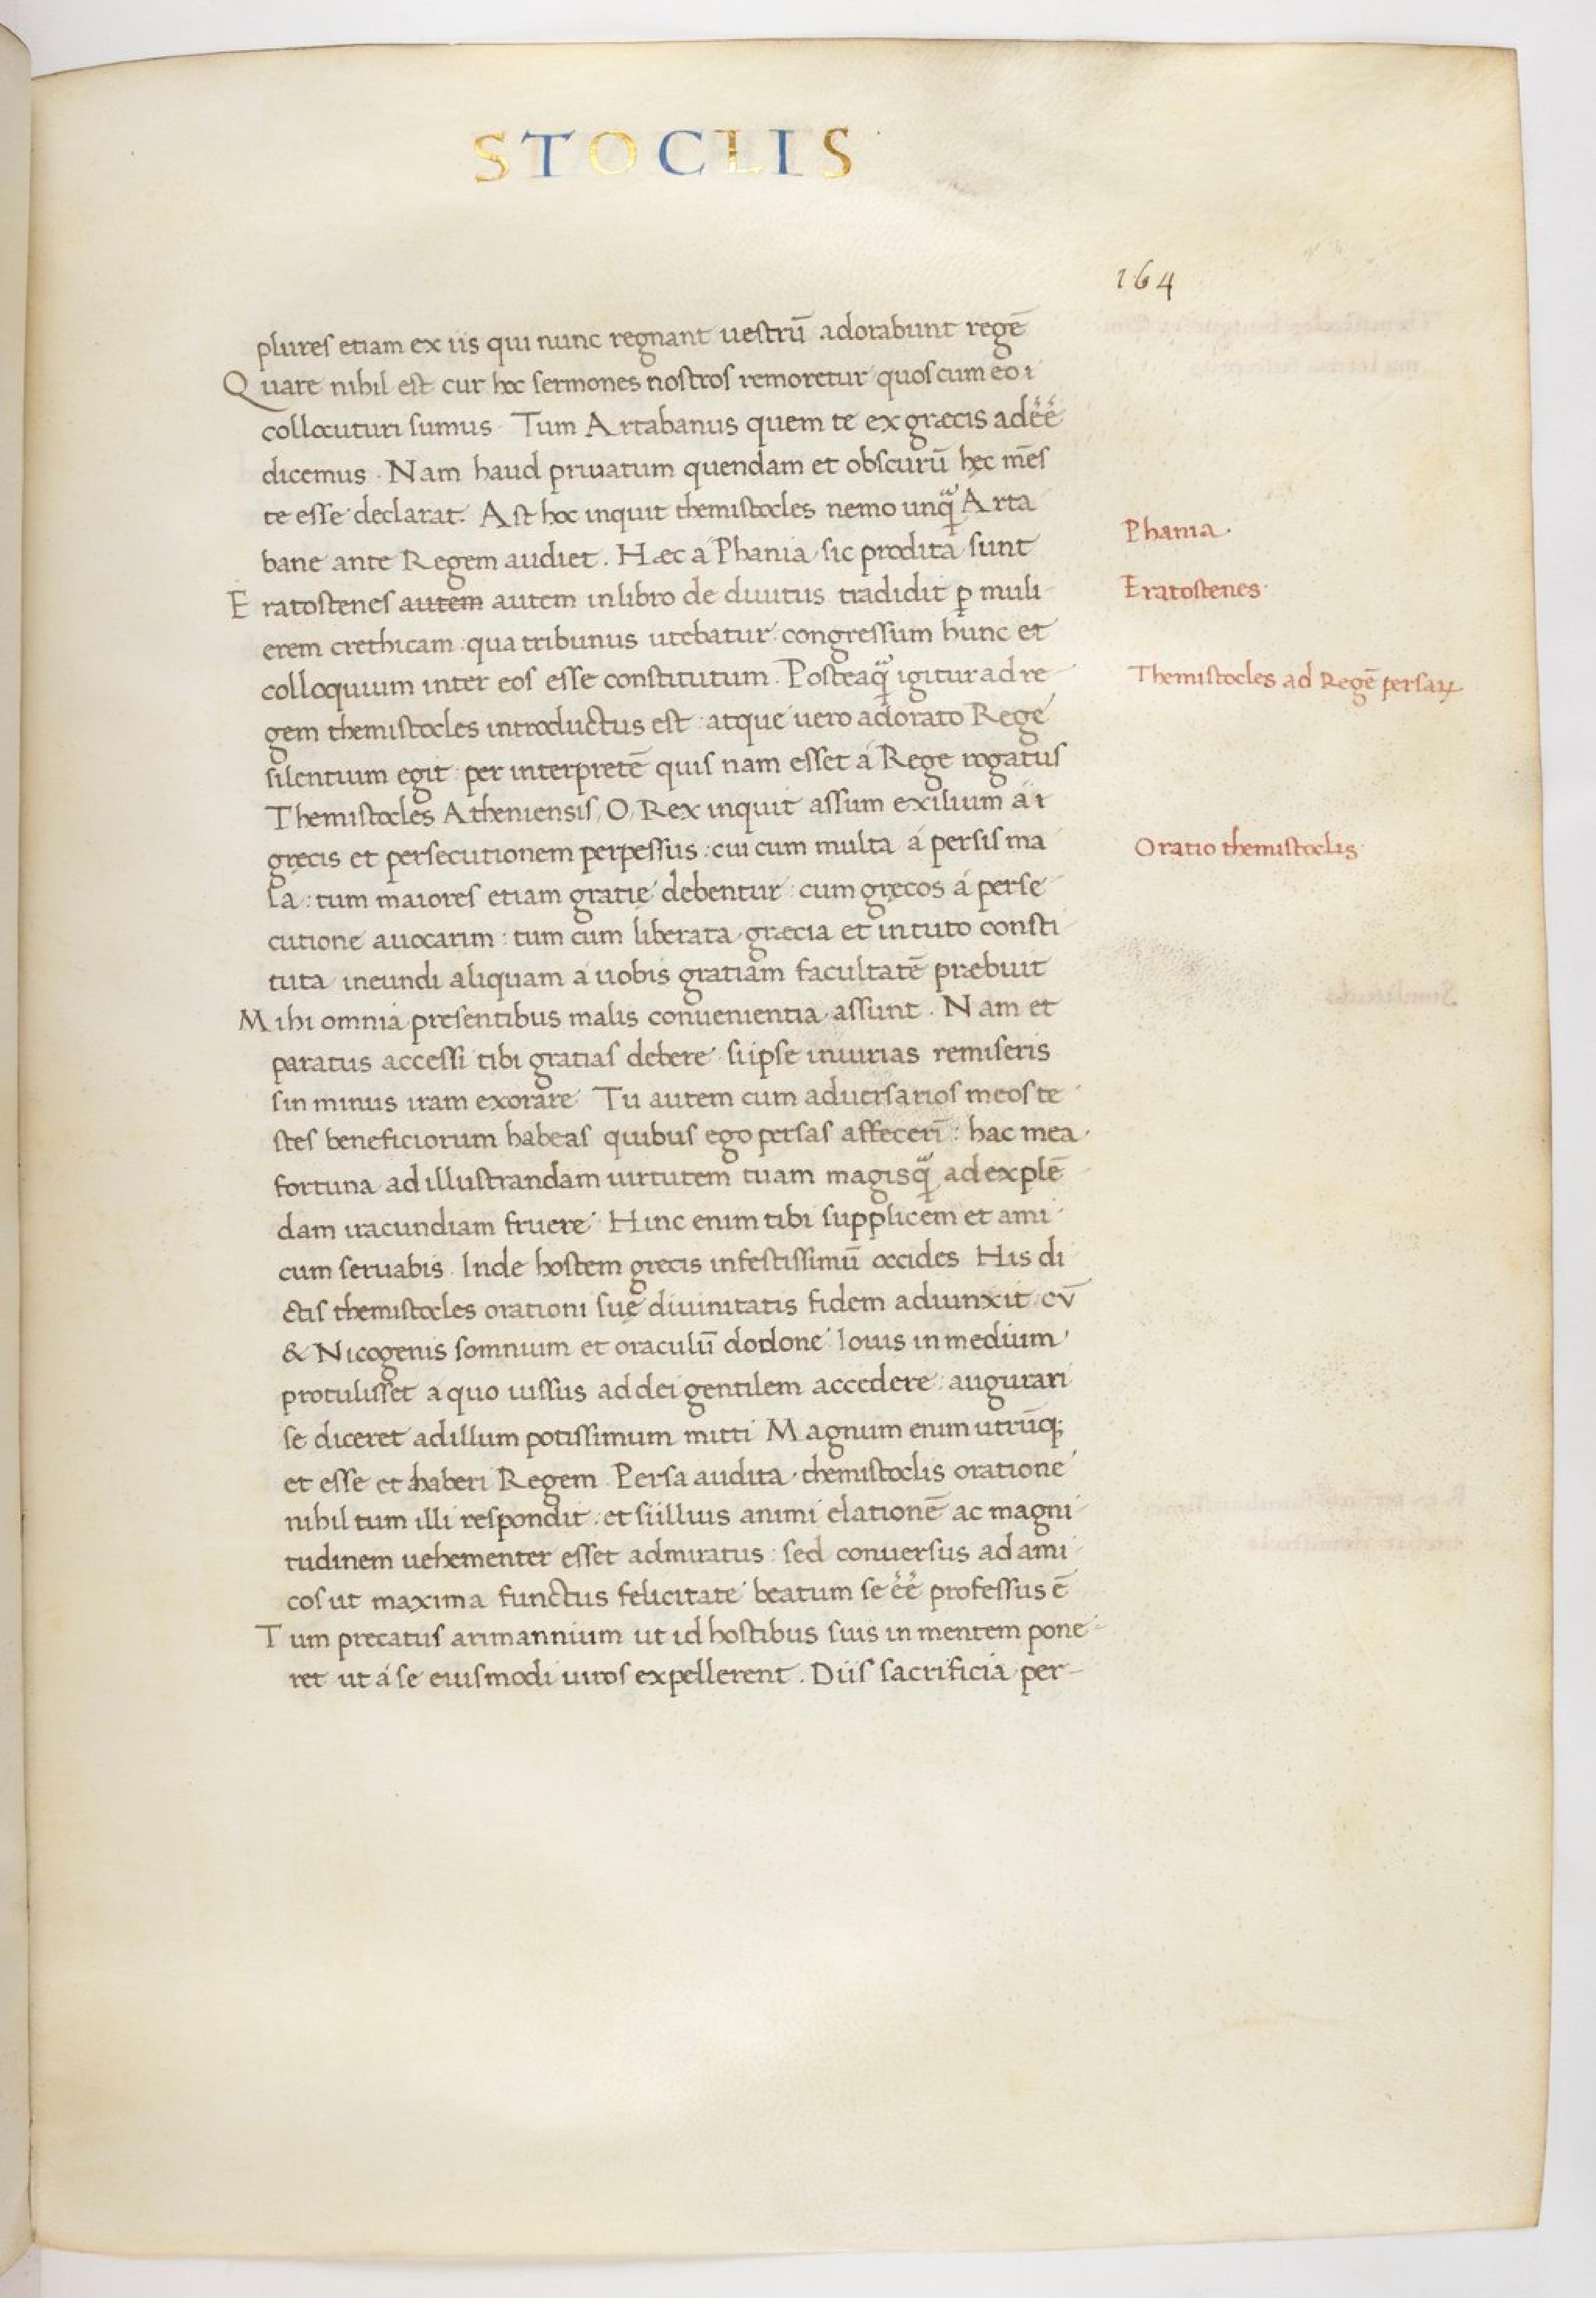 STOCLIS
164
plures etiam ex iis qui nunc regnant uestrū adorabunt regē
Quare nihil est cur hoc sermones nostros remoretur quos cum eo i
collocuturi sumus Tum Artabanus quem te ex græcis adeē
dicemus. Nam haud priuatum quendam et obscurū hęc mēs
te esse declarat. Ast hoc inquit themistocles nemo unq̃ Arta
bane ante Regem audiet. Hæc a Phania sic prodita sunt
Phania.
Eratostenes autem autem in libro de diuitiis tradidit ꝑ muli
Eratostenes
erem crethicam: qua tribunus utebatur: congressum hunc et
colloquium inter eos esse constitutum. Posteaq̃ igitur ad re
Themistocles ad Regē persaꝝ
gem themistocles introductus est: atque uero adorato Rege
silentium egit: per interpretē quis nam esset a Rege rogatus
Themistocles Atheniensis, O, Rex inquit assum exilium a i
gręcis et persecutionem perpessus: cui cum multa a persis ma
Oratio themistoclis
la: tum maiores etiam gratię debentur: cum gręcos a perse
cutione auocarim: tum cum liberata græcia et in tuto consti
tuta ineundi aliquam a uobis gratiam facultatē præbuit
Mihi omnia presentibus malis conuenientia assunt. Nam et
paratus accessi tibi gratias debere si ipse iniurias remiseris
sin minus iram exorare Tu autem cum aduersarios meos te
stes beneficiorum habeas quibus ego persas affecerī: hac mea
fortuna ad illustrandam uirtutem tuam magisq̃ ad explē
dam iracundiam fruere Hinc enim tibi supplicem et ami
cum seruabis. Inde hostem grecis infestissimū occides His di
ctis themistocles orationi suę diuinitatis fidem adiunxit: cū
& Nicogenis somnium et oraculū dodone Iouis in medium
protulisset a quo iussus ad dei gentilem accedere: augurari
se diceret ad illum potissimum mitti Magnum enim utrūq;
et esse et haberi Regem. Persa audita themistoclis oratione
nihil tum illi respondit: et si illius animi elationē ac magni
tudinem uehementer esset admiratus: sed conuersus ad ami
cos ut maxima functus felicitate beatum se ēē professus ē
Tum precatus arimannium ut id hostibus suis in mentem pone
ret ut a se eiusmodi uiros expellerent. Diis sacrificia per-